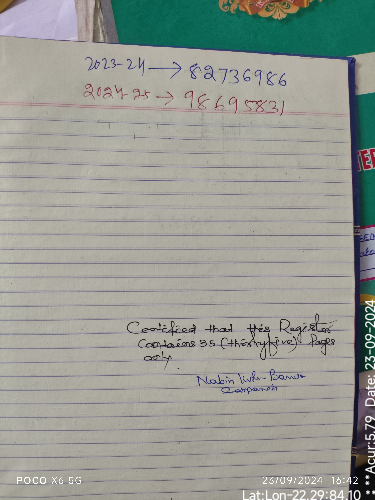 2023-24 → 82736986
2024-25 → 98695831
Certified that this Register
Contains 35 (thirty five) Pages
only.
Nabin
POCO X6 5G
23/09/2024 16:42
Lat:Lon-22.29:84.10
**Acur:5.79 Date: 23-09-2024